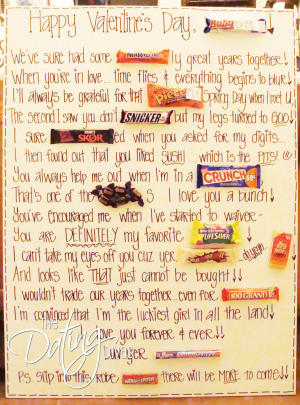 Happy Valentine's Day, Baby RUTH!
We've sure had some ly great years together!
When you're in love... time flies & everything begins to blur.
I'll always be grateful for THAT Spring Day when I met U
The second I saw you don't SNICKERS but my legs turned to GOO!
I sure SKOR ed when you asked for my digits...
I then found out that you liked SUSHI... which is the PITS!
You always help me out when I'm in a CRUNCH
That's one of the S I love you a bunch
You've encouraged me when I've started to waiver-
You are DEFINITELY my favorite LIFE SAVERS
I can't take my eyes off you cuz yer
And looks like THAT just cannot be bought!!
I wouldn't trade our years together even for 100 GRAND
I'm convinced that I'm the luckiest girl in all the land
love you forever & ever!!
THE
Dating
P.S. Slip into this robe there will be MORE to come!